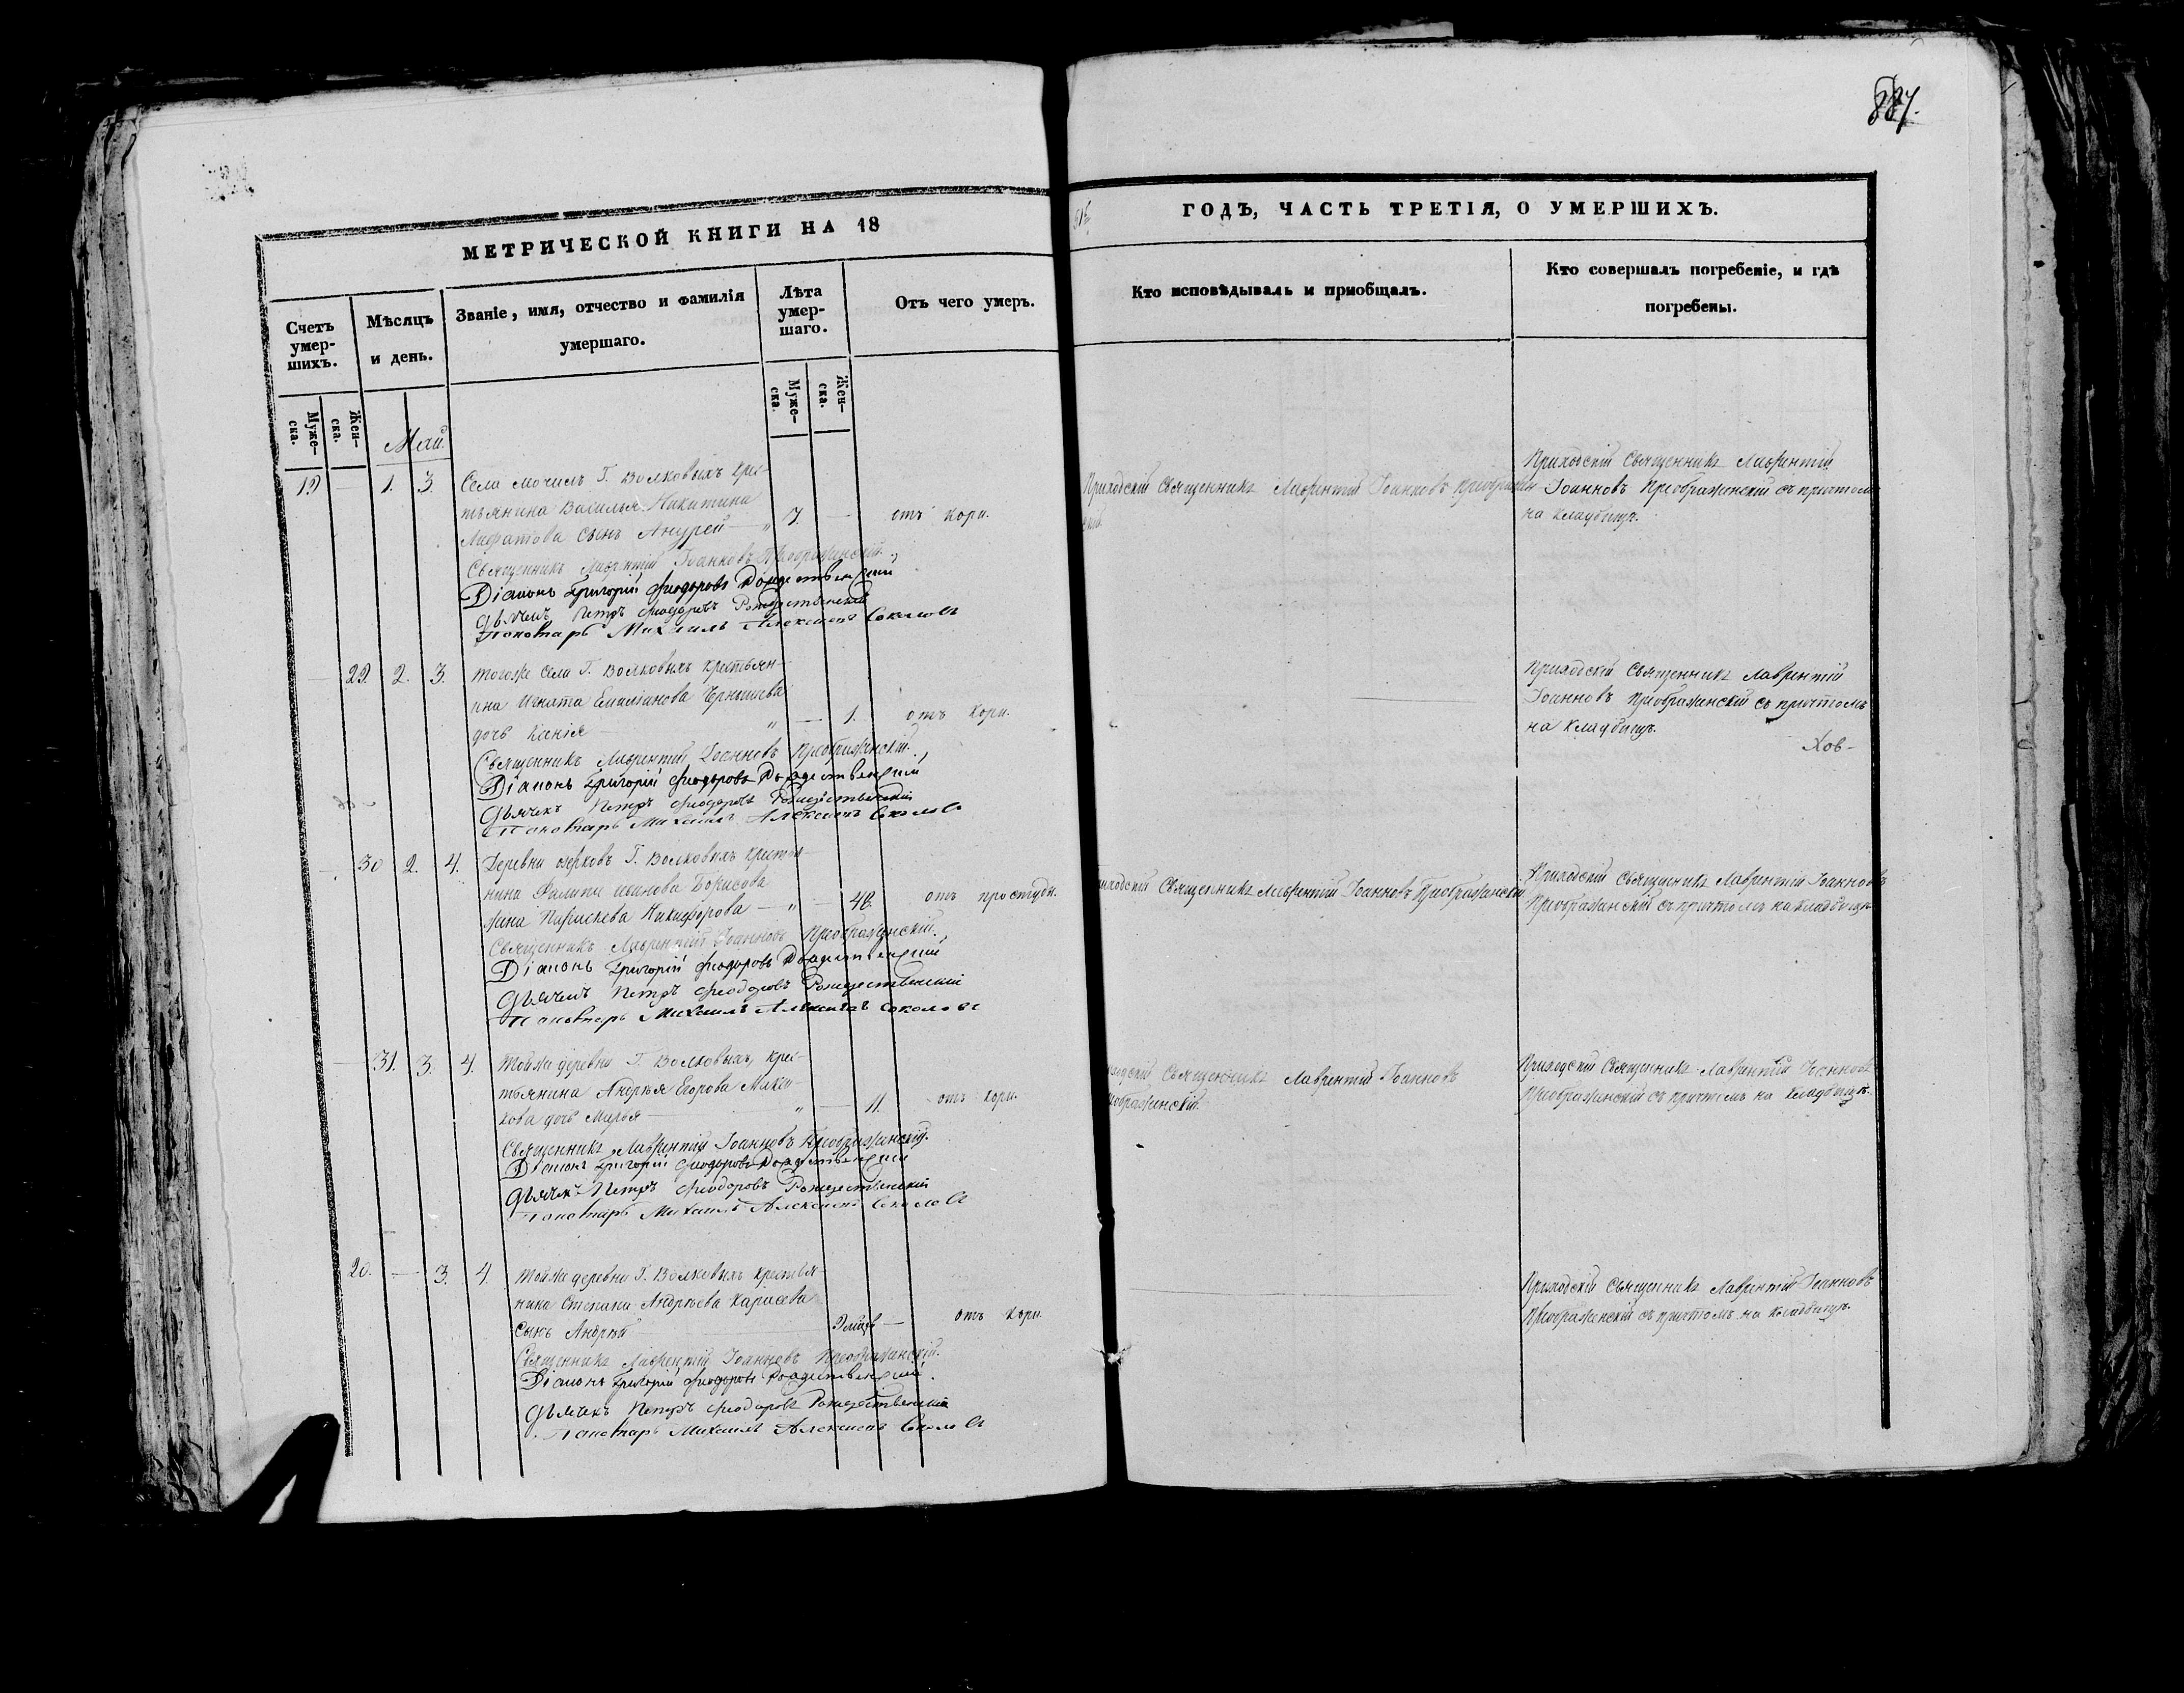 887.
МЕТРИЧЕСКОЙ КНИГИ НА 18
Счетъ умер-шихъ.
Мѣсяцъ и день.
Званіе, имя, отчество и фамилія умершаго.
Лѣта умер-шаго.
Отъ чего умеръ.
Муже-ска.
Жен-ска.
Муже-ска.
Жен-ска.
Май.
19 — 1. 3. Села Мочилъ Г. Волковыхъ крес-
тьянина Василья Никитина
сынъ Андрей — " 7. — отъ кори.
Священникъ Лаврентій Іоанновъ Преображенскій.
Діаконъ Григорій Ѳеодоровъ Рождественскій
Дьячекъ Петръ Ѳеодоровъ Рождественскій
Пономарь Михаилъ Алексѣевъ Соколовъ
29. 2. 3. Тогоже села Г. Волковыхъ крестьян-
ина Игната Емилианова Чернышева
дочь Ксенія — " — 1. отъ кори.
Священникъ Лаврентій Іоанновъ Преображенскій.
Діаконъ Григорій Ѳеодоровъ Рождественскій
Дьячекъ Петръ Ѳеодоровъ Рождественскій
Пономарь Михаилъ Алексѣевъ Соколовъ
— 30 2. 4. Деревни Озерковъ Г. Волковыхъ крестья-
нина Филипа Иванова Борисова
жена Параскева Никифорова — " — 48. отъ простуды.
Священникъ Лаврентій Іоанновъ Преображенскій.
Діаконъ Григорій Ѳеодоровъ Рождественскій
Дьячекъ Петръ Ѳеодоровъ Рождественскій
Пономарь Михаилъ Алексѣевъ Соколовъ
— 31. 3. 4. Тойже деревни Г. Волковыхъ крес-
тьянина Андрея Егорова
дочь Марья — " — 11. отъ кори.
Священникъ Лаврентій Іоанновъ Преображенскій.
Діаконъ Григорій Ѳеодоровъ Рождественскій
Дьячекъ Петръ Ѳеодоровъ Рождественскій
Пономарь Михаилъ Алексѣевъ Соколовъ
20. — 3. 4. Тойже деревни Г. Волковыхъ крестья-
нина Степана Андреева Карасева
сынъ Андрей — отъ кори.
Священникъ Лаврентій Іоанновъ Преображенскій.
Діаконъ Григорій Ѳеодоровъ Рождественскій.
Дьячекъ Петръ Ѳеодоровъ Рождественскій
Пономарь Михаилъ Алексѣевъ Соколовъ
ГОДЪ, ЧАСТЬ ТРЕТІЯ, О УМЕРШИХЪ.
Кто исповѣдывалъ и пріобщалъ.
Кто совершалъ погребеніе, и гдѣ погребены.
Приходскій Священникъ Лаврентій Іоанновъ Преображен
скій.
Приходскій Священникъ Лаврентій
Іоанновъ Преображенскій съ причтомъ
на кладбищѣ.
Приходскій Священникъ Лаврентій
Іоанновъ Преображенскій съ причтомъ
на кладбищѣ.
Хов-
приходскій Священникъ Лаврентій Іоанновъ Преображенскій
Приходскій Священникъ Лаврентій Іоанновъ
Преображенскій съ причтомъ на кладбищѣ
приходскій Священникъ Лаврентій Іоанновъ
Преображенскій.
Приходскій Священникъ Лаврентій Іоанновъ
Преображенскій съ причтомъ на кладбищѣ.
Приходскій Священникъ Лаврентій Іоанновъ
Преображенскій съ причтомъ на кладбищѣ.